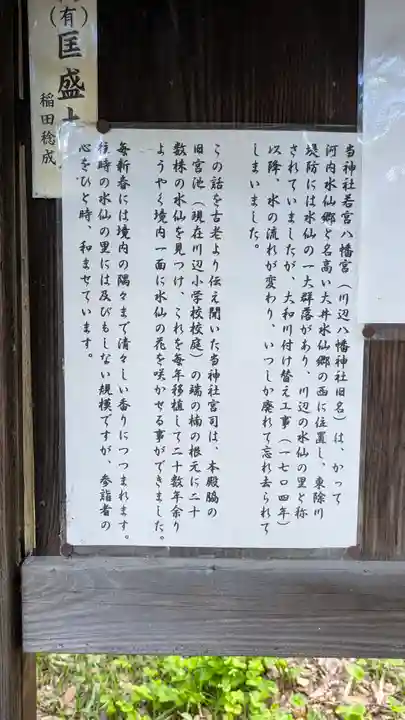 (有)匡盛
稲田稔成
当神社若宮八幡宮(川辺八幡神社旧名)は、かって
河内水仙郷と名高い大井水仙郷の西に位置し、東除川
堤防には水仙の一大群落があり、川辺の水仙の里と称
されていましたが、大和川付け替え工事(一七〇四年)
以降、水の流れが変わり、いつしか廃れて忘れ去られて
しまいました。
この話を古老より伝え聞いた当神社宮司は、本殿脇の
旧宮池(現在川辺小学校校庭)の端の楠の根元に二十
数株の水仙を見つけ、これを毎年移植して二十数年余り
ようやく境内一面に水仙の花を咲かせる事ができました。
毎新春には境内の隅々まで清々しい香りにつつまれます。
往時の水仙の里には及びもしない規模ですが、参詣者の
心をひと時、和ませています。